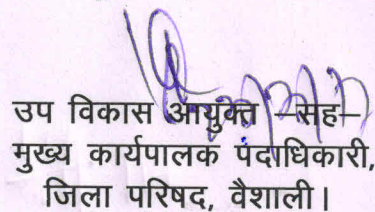 उप विकास आयुक्त -सह-
मुख्य कार्यपालक पदाधिकारी,
जिला परिषद, वैशाली।